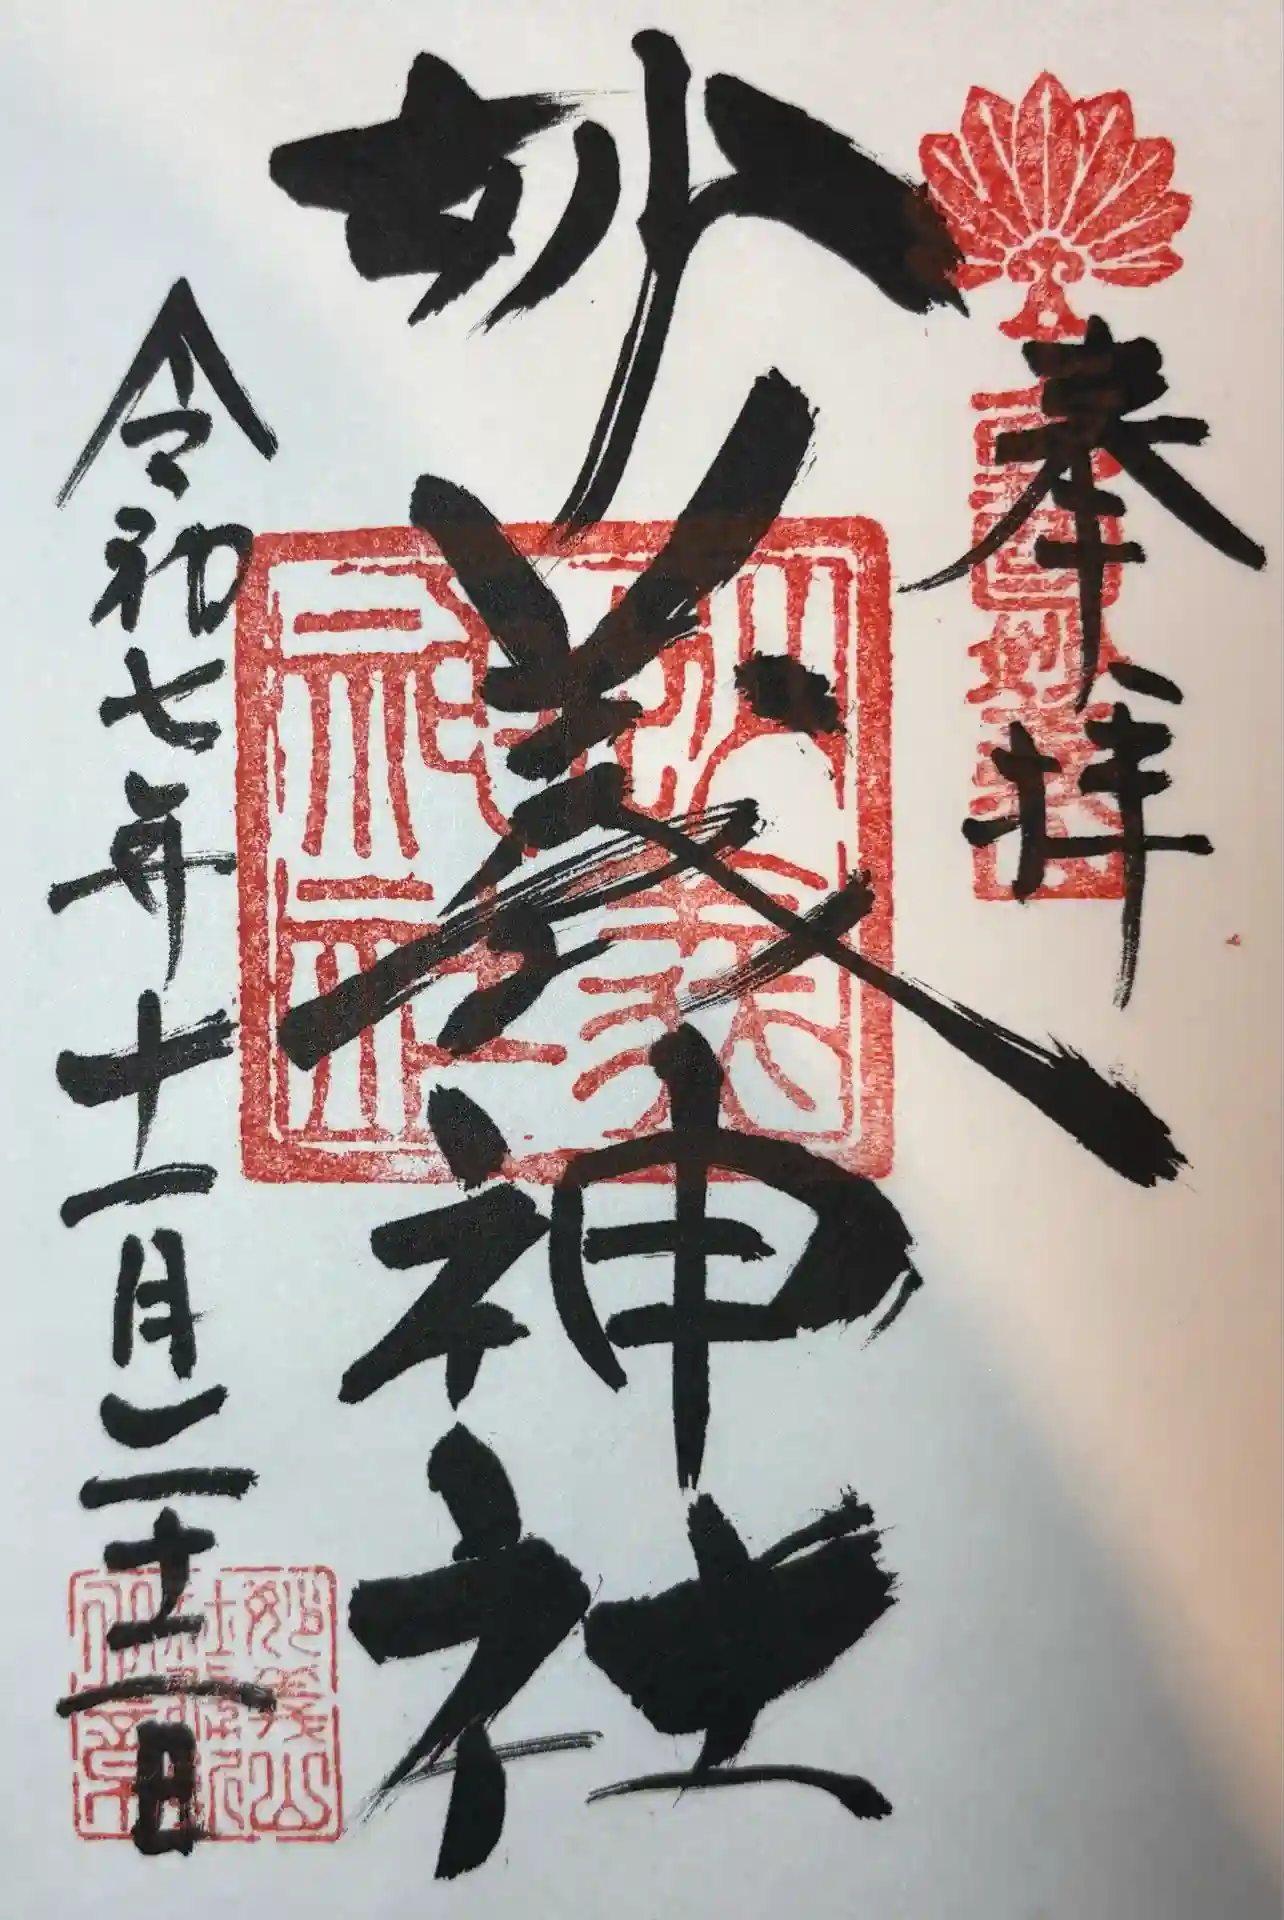 奉拝
妙義神社
妙義神社
令和七年十一月二十二日